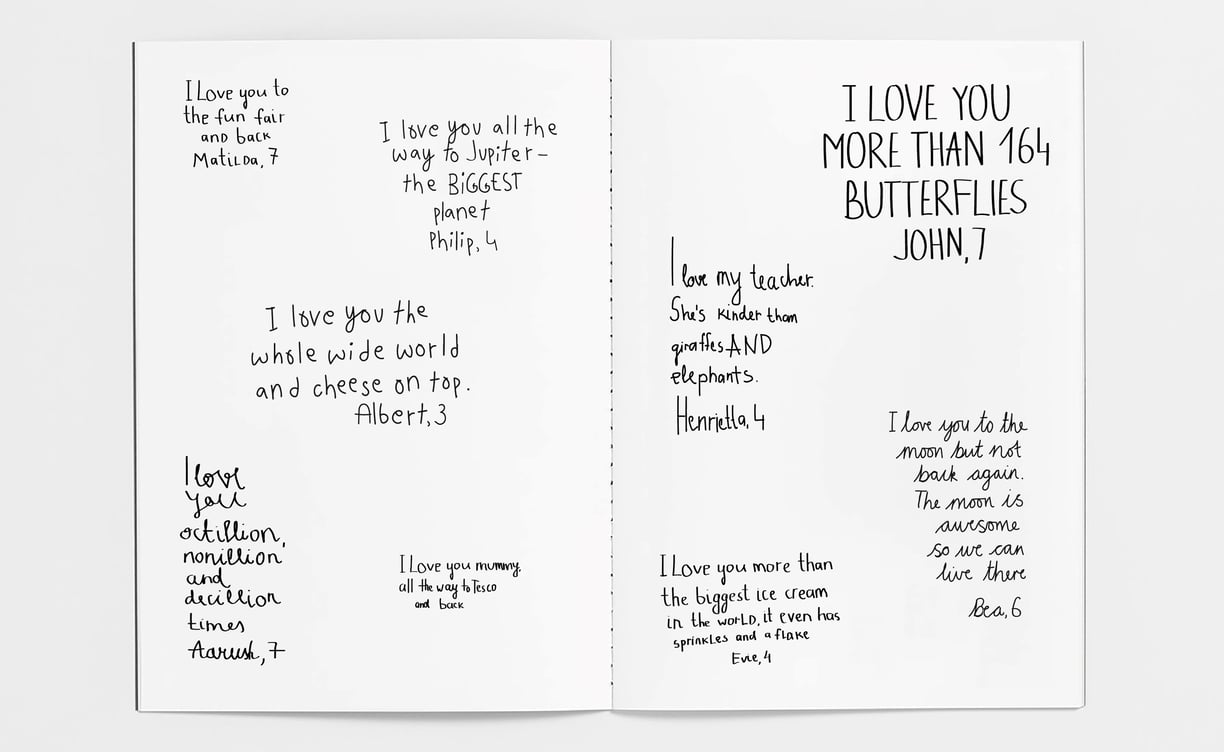 I Love you to
the fun fair
and back
Matilda, 7
I love you all the
way to Jupiter –
the BiGGEST
planet
Philip, 4
I love you the
whole wide world
and cheese on top.
Albert, 3
I love
you
octillion,
nonillion
and
decillion
times
Aarush, 7
I Love you mummy,
all the way to Tesco
and back
I LOVE YOU
MORE THAN 164
BUTTERFLIES
JOHN, 7
I love my teacher.
She's kinder than
giraffes AND
elephants.
Henrietta, 4
I love you to the
moon but not
back again.
The moon is
awesome
so we can
live there
Bea, 6
I Love you more than
the biggest ice cream
in the world, it even has
sprinkles and a flake
Evie, 4